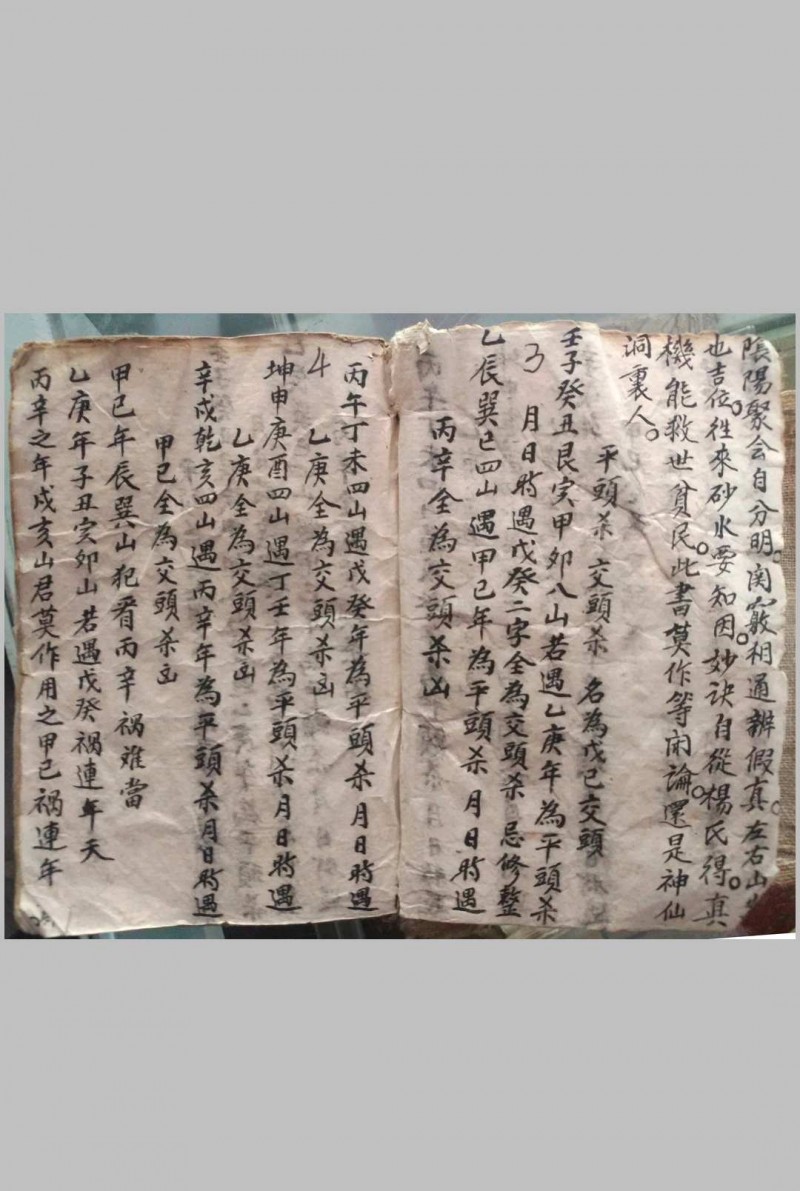 陰陽聚会自分明。関竅相通辨假真。左右山
也吉位。往來砂水要知因。妙诀自從楊氏得。真
機能救世貧民。此書莫作等闲論。還是神仙
洞裏人。
平頭杀 交頭杀 名為戊己交頭
壬子癸丑艮寅甲卯八山若遇乙庚年為平頭杀
3 月日時遇戊癸二字全為交頭杀 忌修整
乙辰巽巳四山遇甲己年為平頭杀 月日時遇
丙辛全為交頭杀凶
丙午丁未四山遇戊癸年為平頭杀月日時遇
4 乙庚全為交頭杀凶
坤申庚酉四山遇丁壬年為平頭杀月日時遇
乙庚全為交頭杀凶
辛戌乾亥四山遇丙辛年為平頭杀月日時遇
甲己全為交頭杀凶
甲己年辰巽山犯着丙辛禍难當
乙庚年子丑寅卯山若遇戊癸禍連年天
丙辛之年戌亥山君莫作用之甲己禍連年